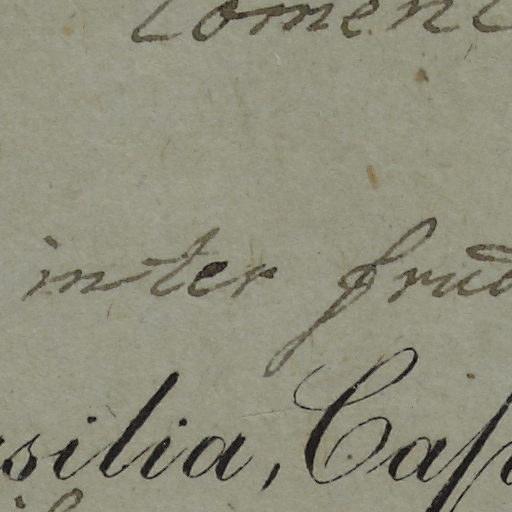 toment
inter frut
silia, Cap